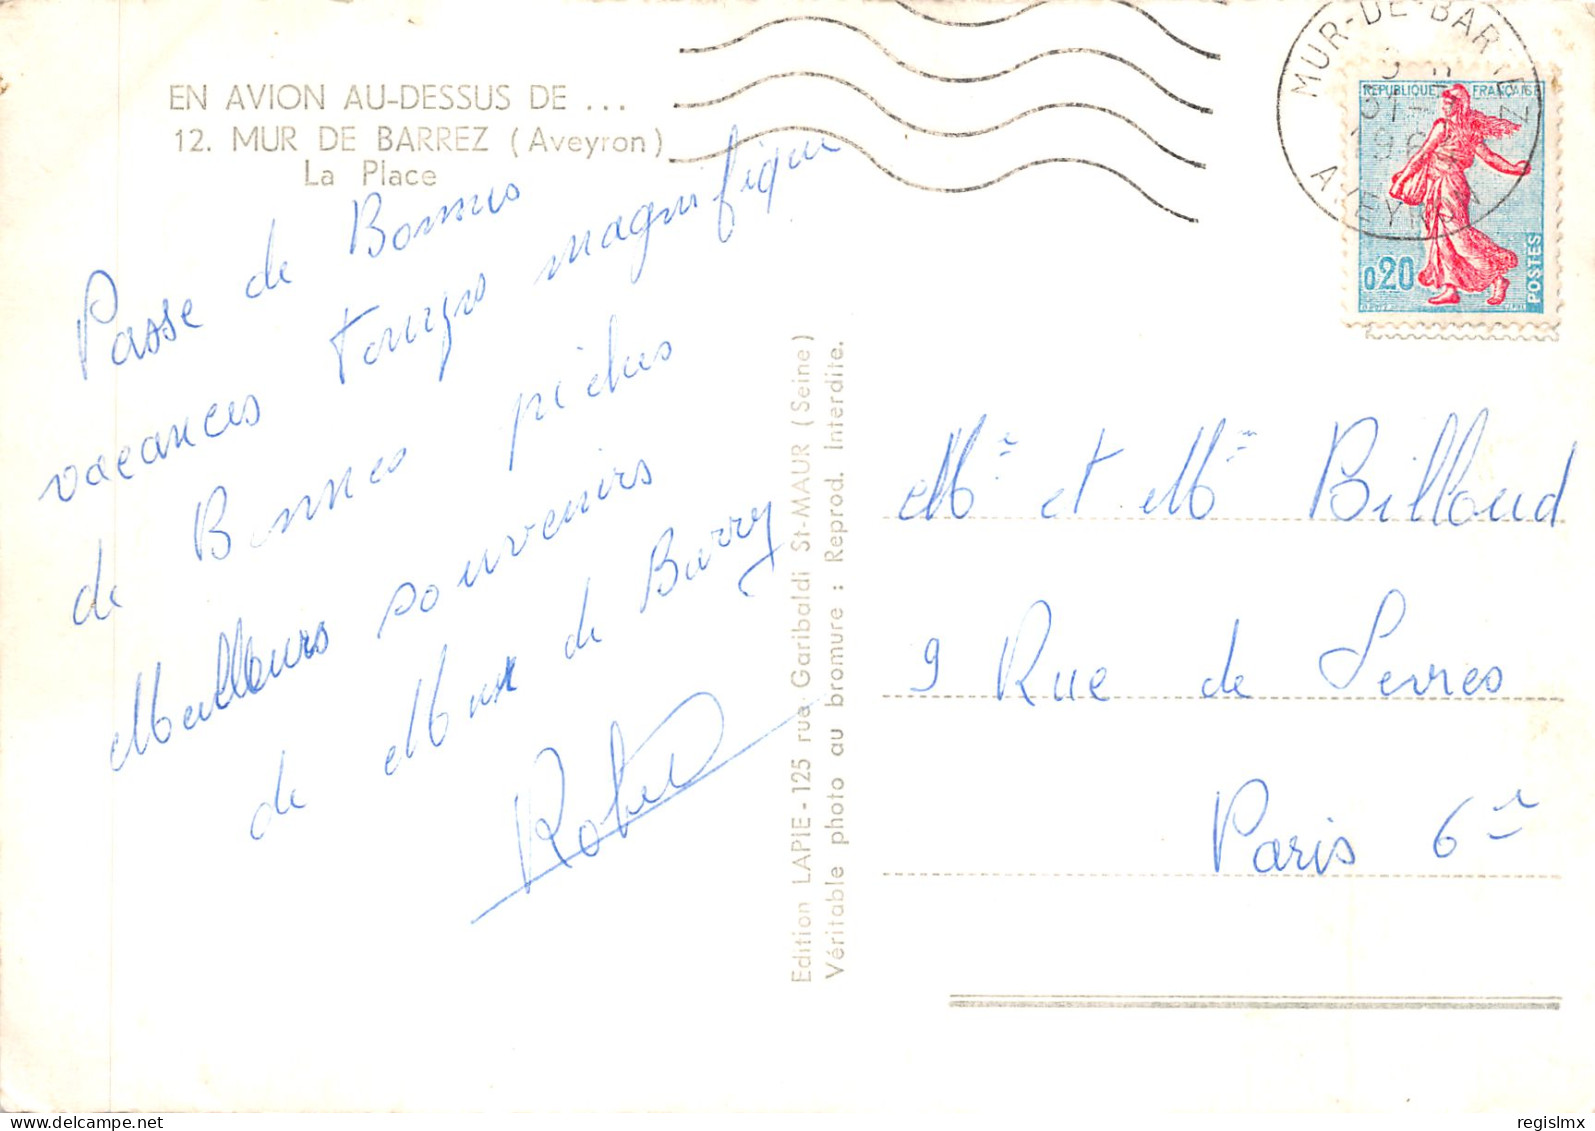 EN AVION AU-DESSUS DE ...
12. MUR DE BARREZ (Aveyron)
La Place
Passe de Bonnes
vacances temps magnifique
de Bonnes pêches
Meilleurs souvenirs
de Mur de Barry
Robert
Edition LAPIE - 125 rue Garibaldi St-MAUR (Seine)
Véritable photo au bromure : Reprod. Interdite.
MUR-DE-BARREZ
AVEYRON
REPUBLIQUE FRANÇAISE
0,20
POSTES
Mr et Mme Billoud
9 Rue de Sevres
Paris 6e
delcampe.net
regislmx